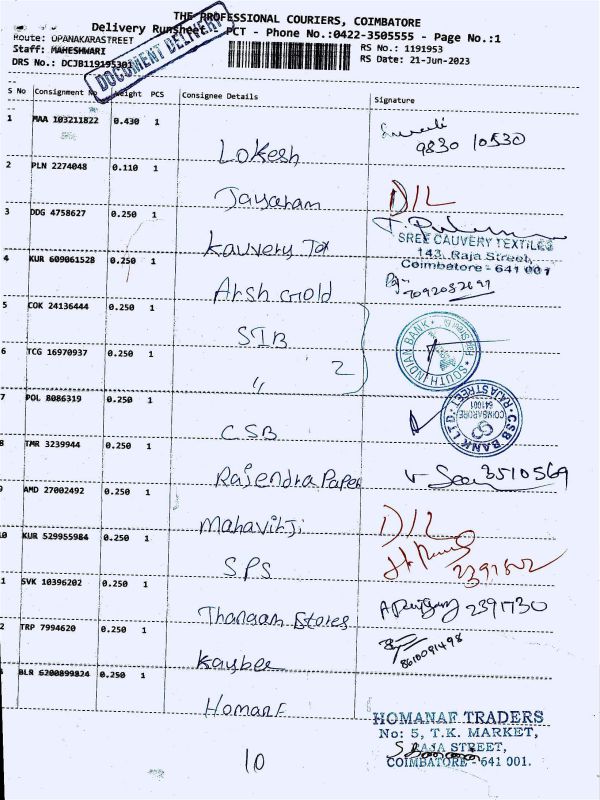 THE PROFESSIONAL COURIERS, COIMBATORE
Delivery Runsheet PCT - Phone No.:0422-3505555 - Page No.:1
Route: OPANAKARASTREET
Staff: MAHESHWARI
DRS No.: DCJB119195301
RS No.: 1191953
RS Date: 21-Jun-2023
DOCUMENT DELIVERY
S No Consignment No Weight PCS Consignee Details Signature
1 MAA 103211822 0.430 1
Lokesh
9830 10530
2 PLN 2274048 0.110 1
Jayaram
D/L
3 DDG 4758627 0.250 1
Kauvery Tex
SREE CAUVERY TEXTILES
143, Raja Street,
Coimbatore - 641 001
4 KUR 609061528 0.250 1
Arsh Gold
7092052697
5 COK 24136444 0.250 1
SIB
SOUTH INDIAN BANK
6 TCG 16970937 0.250 1
〃 2
7 POL 8086319 0.250 1
CSB
CSB BANK LTD. RAJASTREET
COIMBATORE
641001
8 TMR 3239944 0.250 1
Rajendra Paper
3510569
9 AMD 27002492 0.250 1
Mahavirji
D/L
0 KUR 529955984 0.250 1
SPS
2391602
1 SVK 10396202 0.250 1
Thangam Stores
2391730
2 TRP 7994620 0.250 1
Kaybee
8610091498
BLR 6200899824 0.250 1
Homanf
HOMANAF TRADERS
No: 5, T.K. MARKET,
RAJA STREET,
COIMBATORE - 641 001.
10